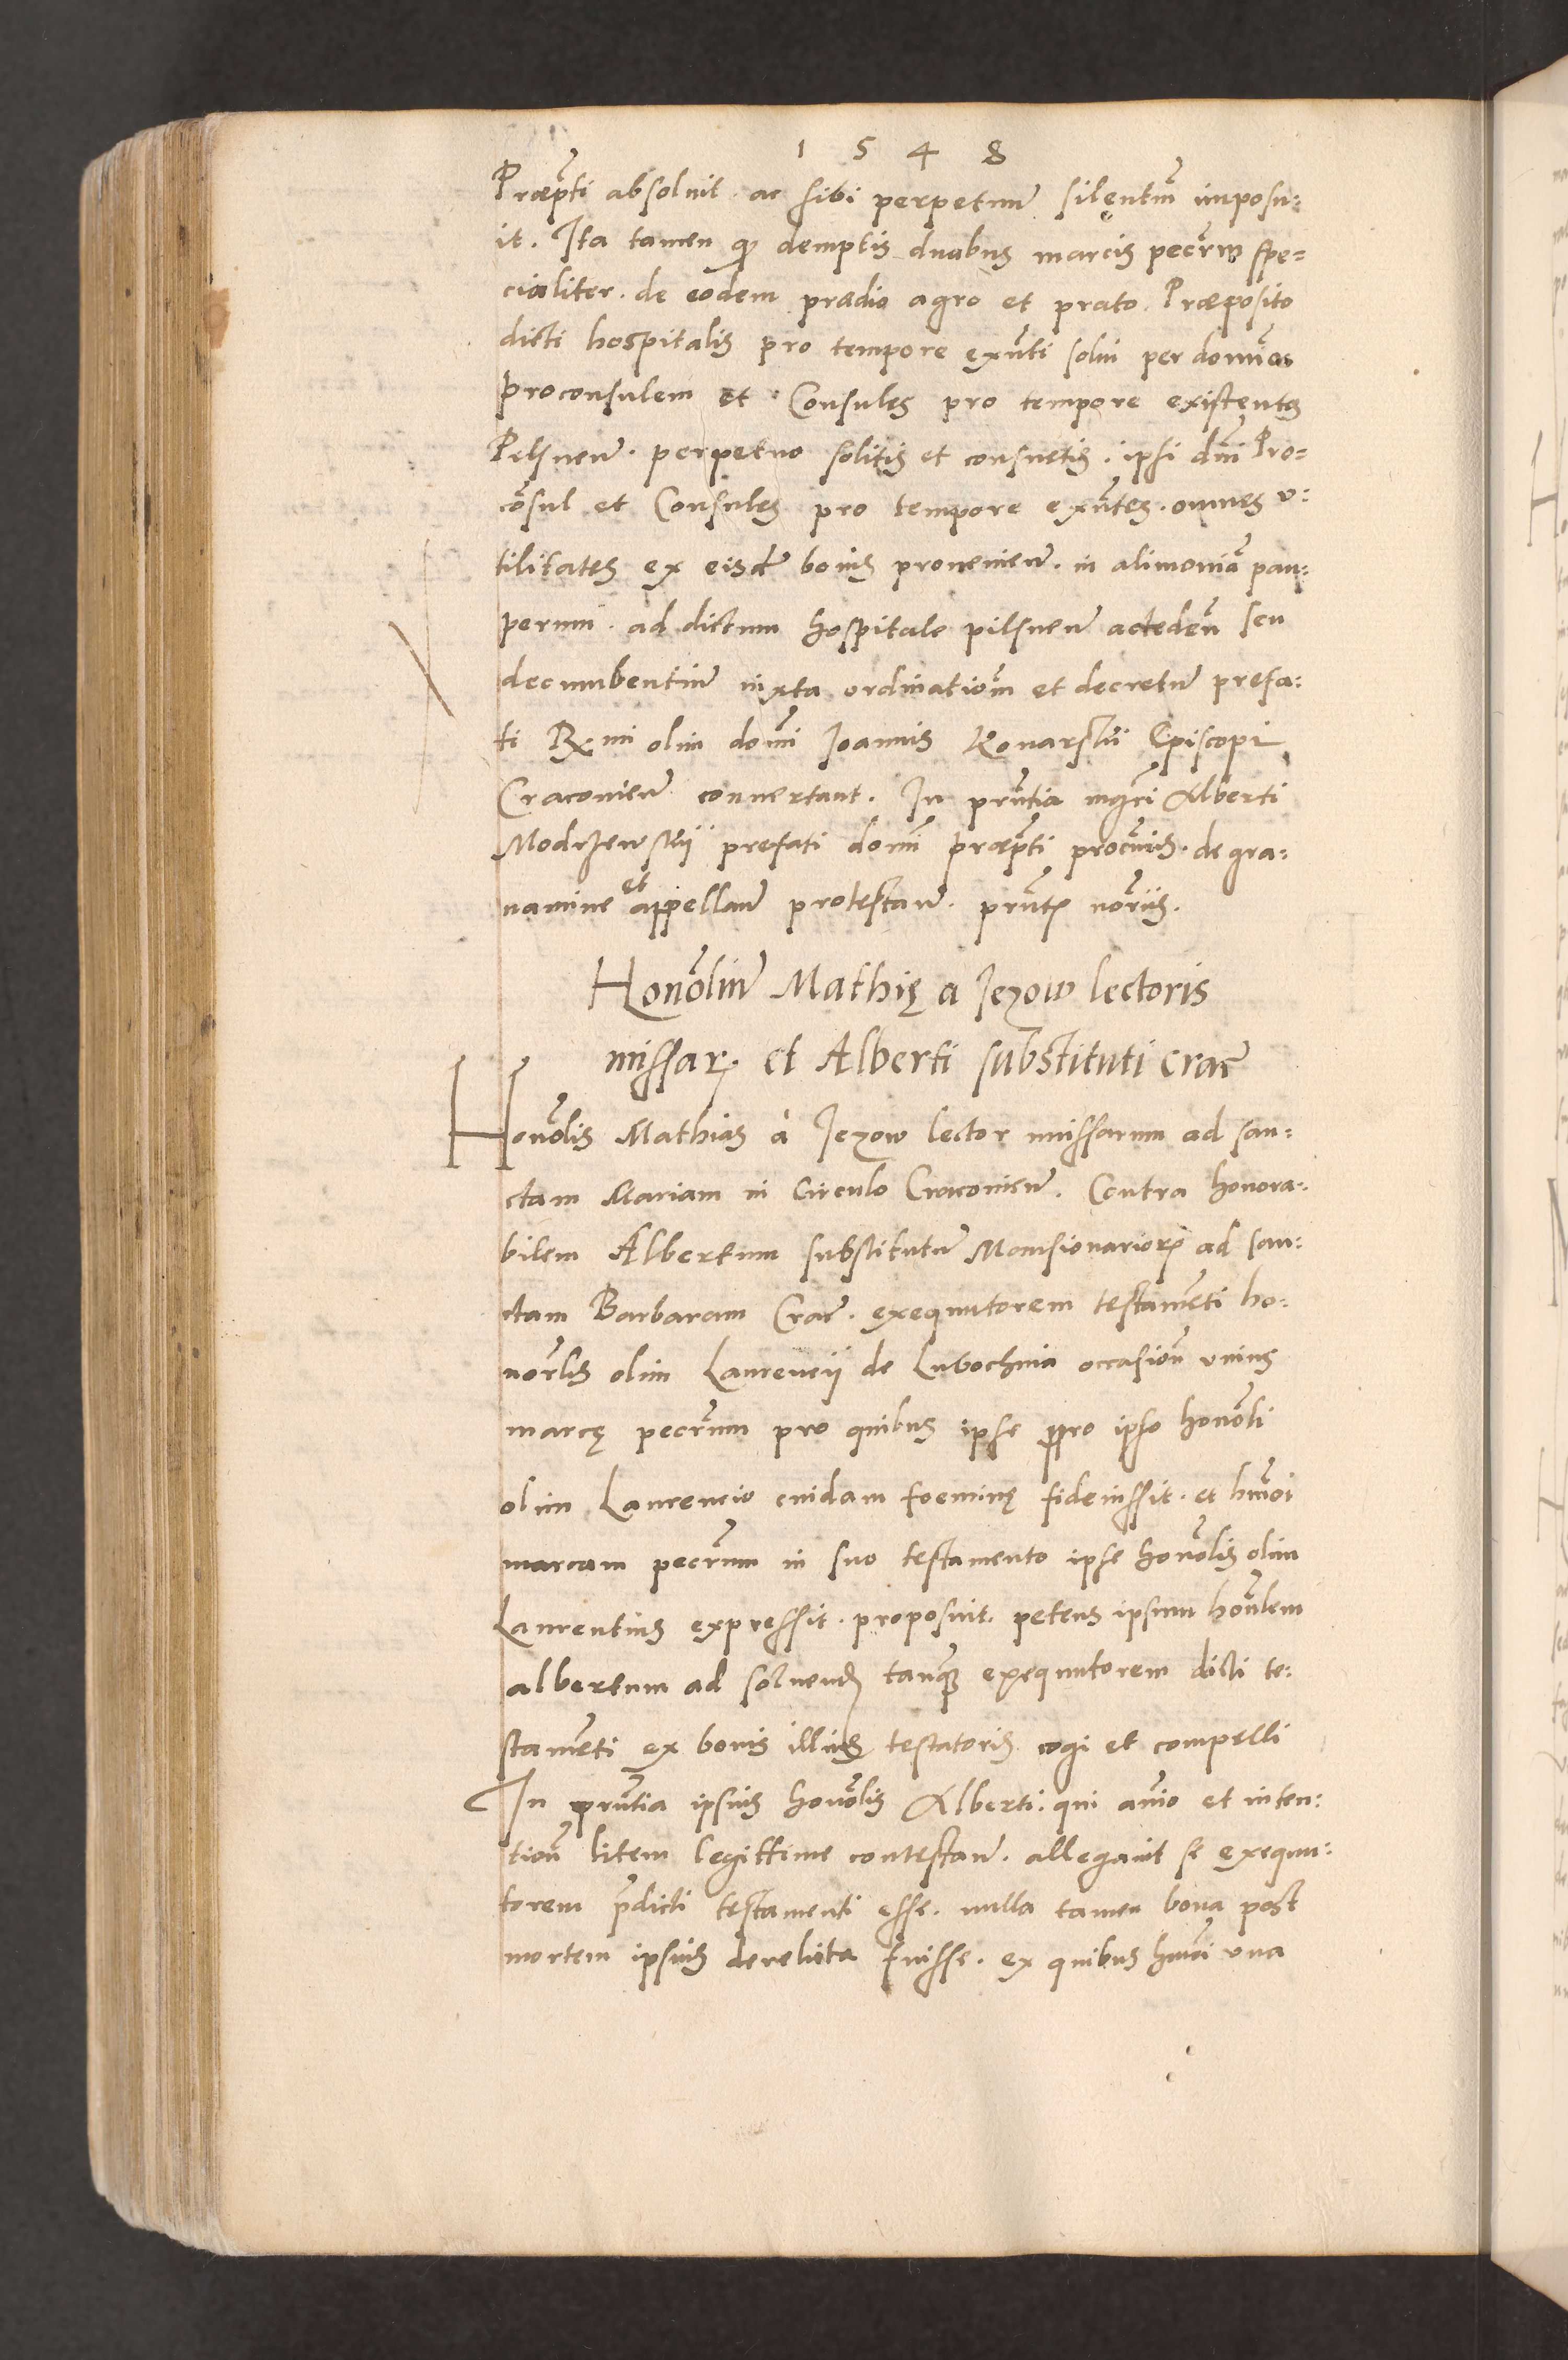 1548
Præpti absoluit ac sibi perpetuum silentm imposu:
it. Ita tamen demptis duabus marcis pecrm spe=
cialiter. de eodem prædio agro et prato Præposito
dicti hospitalis pro tempore exnti solui per dominos
proconsulem et Consules pro tempore existentes
Pilsnen. perpetuo solitis et consuetis. ipsi dni Pro=
cosul et Consules pro tempore exntes. omnes v:
tilitates ex eisdem bonis prouenien. in alimonia pau:
perum. ad dictum hospitale pilsnen accedeñ seu
decumbentium iuxta ordinatiom et decretum prefa:
ti Rmi olim domi Joannis Konarskii Episcopi
Cracouien conuertant. In pntia mgci Alberti
Modrzewskii prefati domi præpti procuris. de gra:
uamine et appellan protestan. pntes notriis.
Honoliu Mathię a Jezow lectoris
missar et Alberti substituti crac
Honolis Mathias à Jezow lector missarum ad san:
ctam Mariam in circulo Cracouien. Contra honora:
bilem Albertum substitutum Mansionarior ad san:
ctam Barbaram Crac. exequutorem testameti ho:
norlis olim Laurencij de Lubochnia occasion vnius
marcę pecrum pro quibus ipse pro ipso honoli
olim Laurencio cuidam foeminę fideiussit. et hmoi
marcam pecrum in suo testamento ipse honolis olim
Laurentius expressit. proposuit. petens ipsum honlem
albertum ad soluend tanq exequutorem dicti te:
stameti ex bonis illius testatoris cogi et compelli
In pntia ipsius honolis Alberti. qui animo et inten:
tion litem legittime contestan. allegauit se exequu:
torem pdicti testamenti esse. nulla tamen bona post
mortem ipsius derelicta fuisse. ex quibus hmoi vna